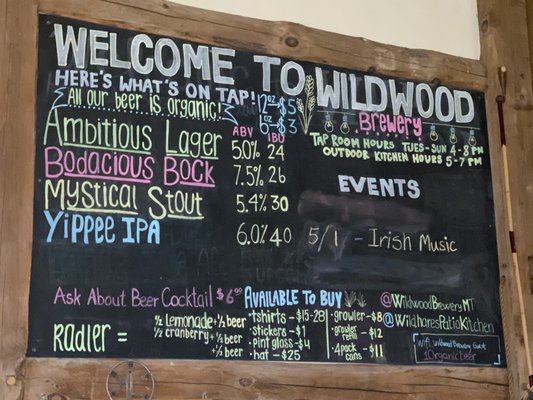 WELCOME TO WILDWOOD
Brewery
HERE'S WHAT'S ON TAP!
All our beer is organic!
12oz $5
6oz $3
ABV IBU
Ambitious Lager 5.0% 24
Bodacious Bock 7.5% 26
Mystical Stout 5.4% 30
Yippee IPA 6.0% 40
TAP ROOM HOURS TUES-SUN 4-8 PM
OUTDOOR KITCHEN HOURS 5-7 PM
EVENTS
5/1 - Irish Music
Ask About Beer Cocktail $6
RADLER =
1/2 Lemonade + 1/2 beer
1/2 cranberry + 1/2 beer
+ 1/2 beer
+ 1/2 beer
AVAILABLE TO BUY
• tshirts - $15-28
• stickers - $1
• pint glass - $4
• hat - $25
• growler - $8
• growler refill $12
• 4pack cans $11
@WildwoodBreweryMT
@WildharesPatioKitchen
Wifi: Wildwood Brewing Guest
1Organicbeer